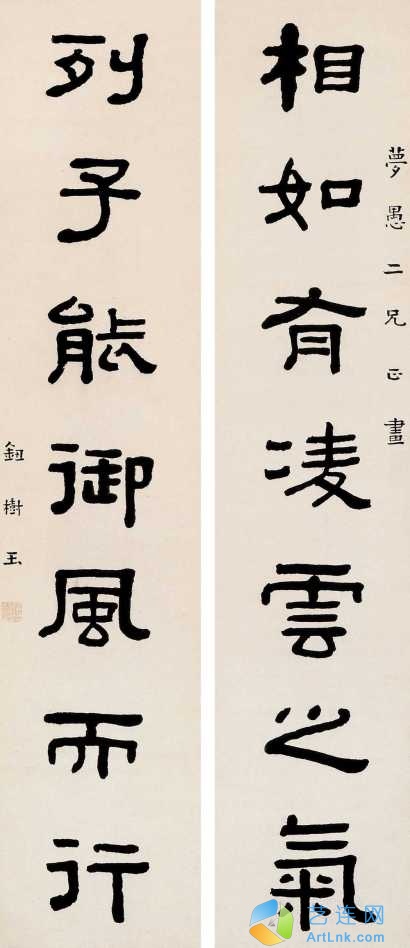 夢愚二兄正畫
相如有凌雲之氣
列子能御風而行
鈕樹玉
艺连网
ArtLnk.com